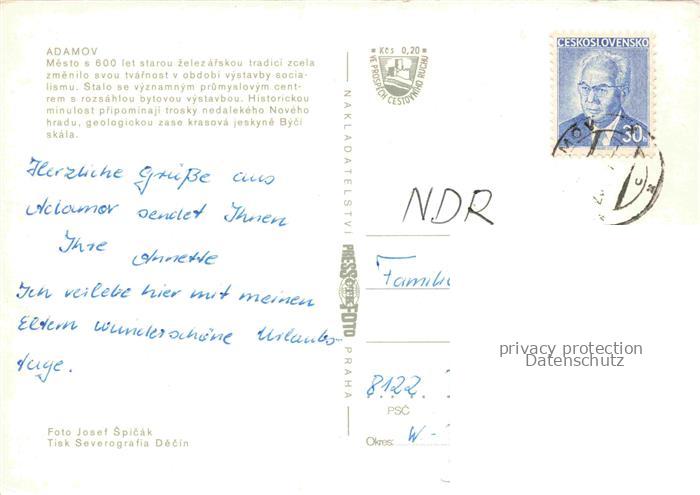 ADAMOV
Město s 600 let starou železářskou tradicí zcela
změnilo svou tvářnost v období výstavby socia-
lismu. Stalo se významným průmyslovým cent-
rem s rozsáhlou bytovou výstavbou. Historickou
minulost připomínají trosky nedalekého Nového
hradu, geologickou zase krasová jeskyně Býčí
skála.
Herzliche Grüße aus
Adamov sendet Ihnen
Ihre
Annette
Ich verlebe hier mit meinen
Eltern wunderschöne Urlaubs-
tage.
Foto Josef Špičák
Tisk Severografia Děčín
NAKLADATELSTVÍ
PRESSFOTO
PRAHA
Kčs 0,20
VE PROSPĚCH CESTOVNÍHO RUCHU
ČESKOSLOVENSKO
30
NDR
Familie
8122
PSČ
Okres: W-
privacy protection
Datenschutz